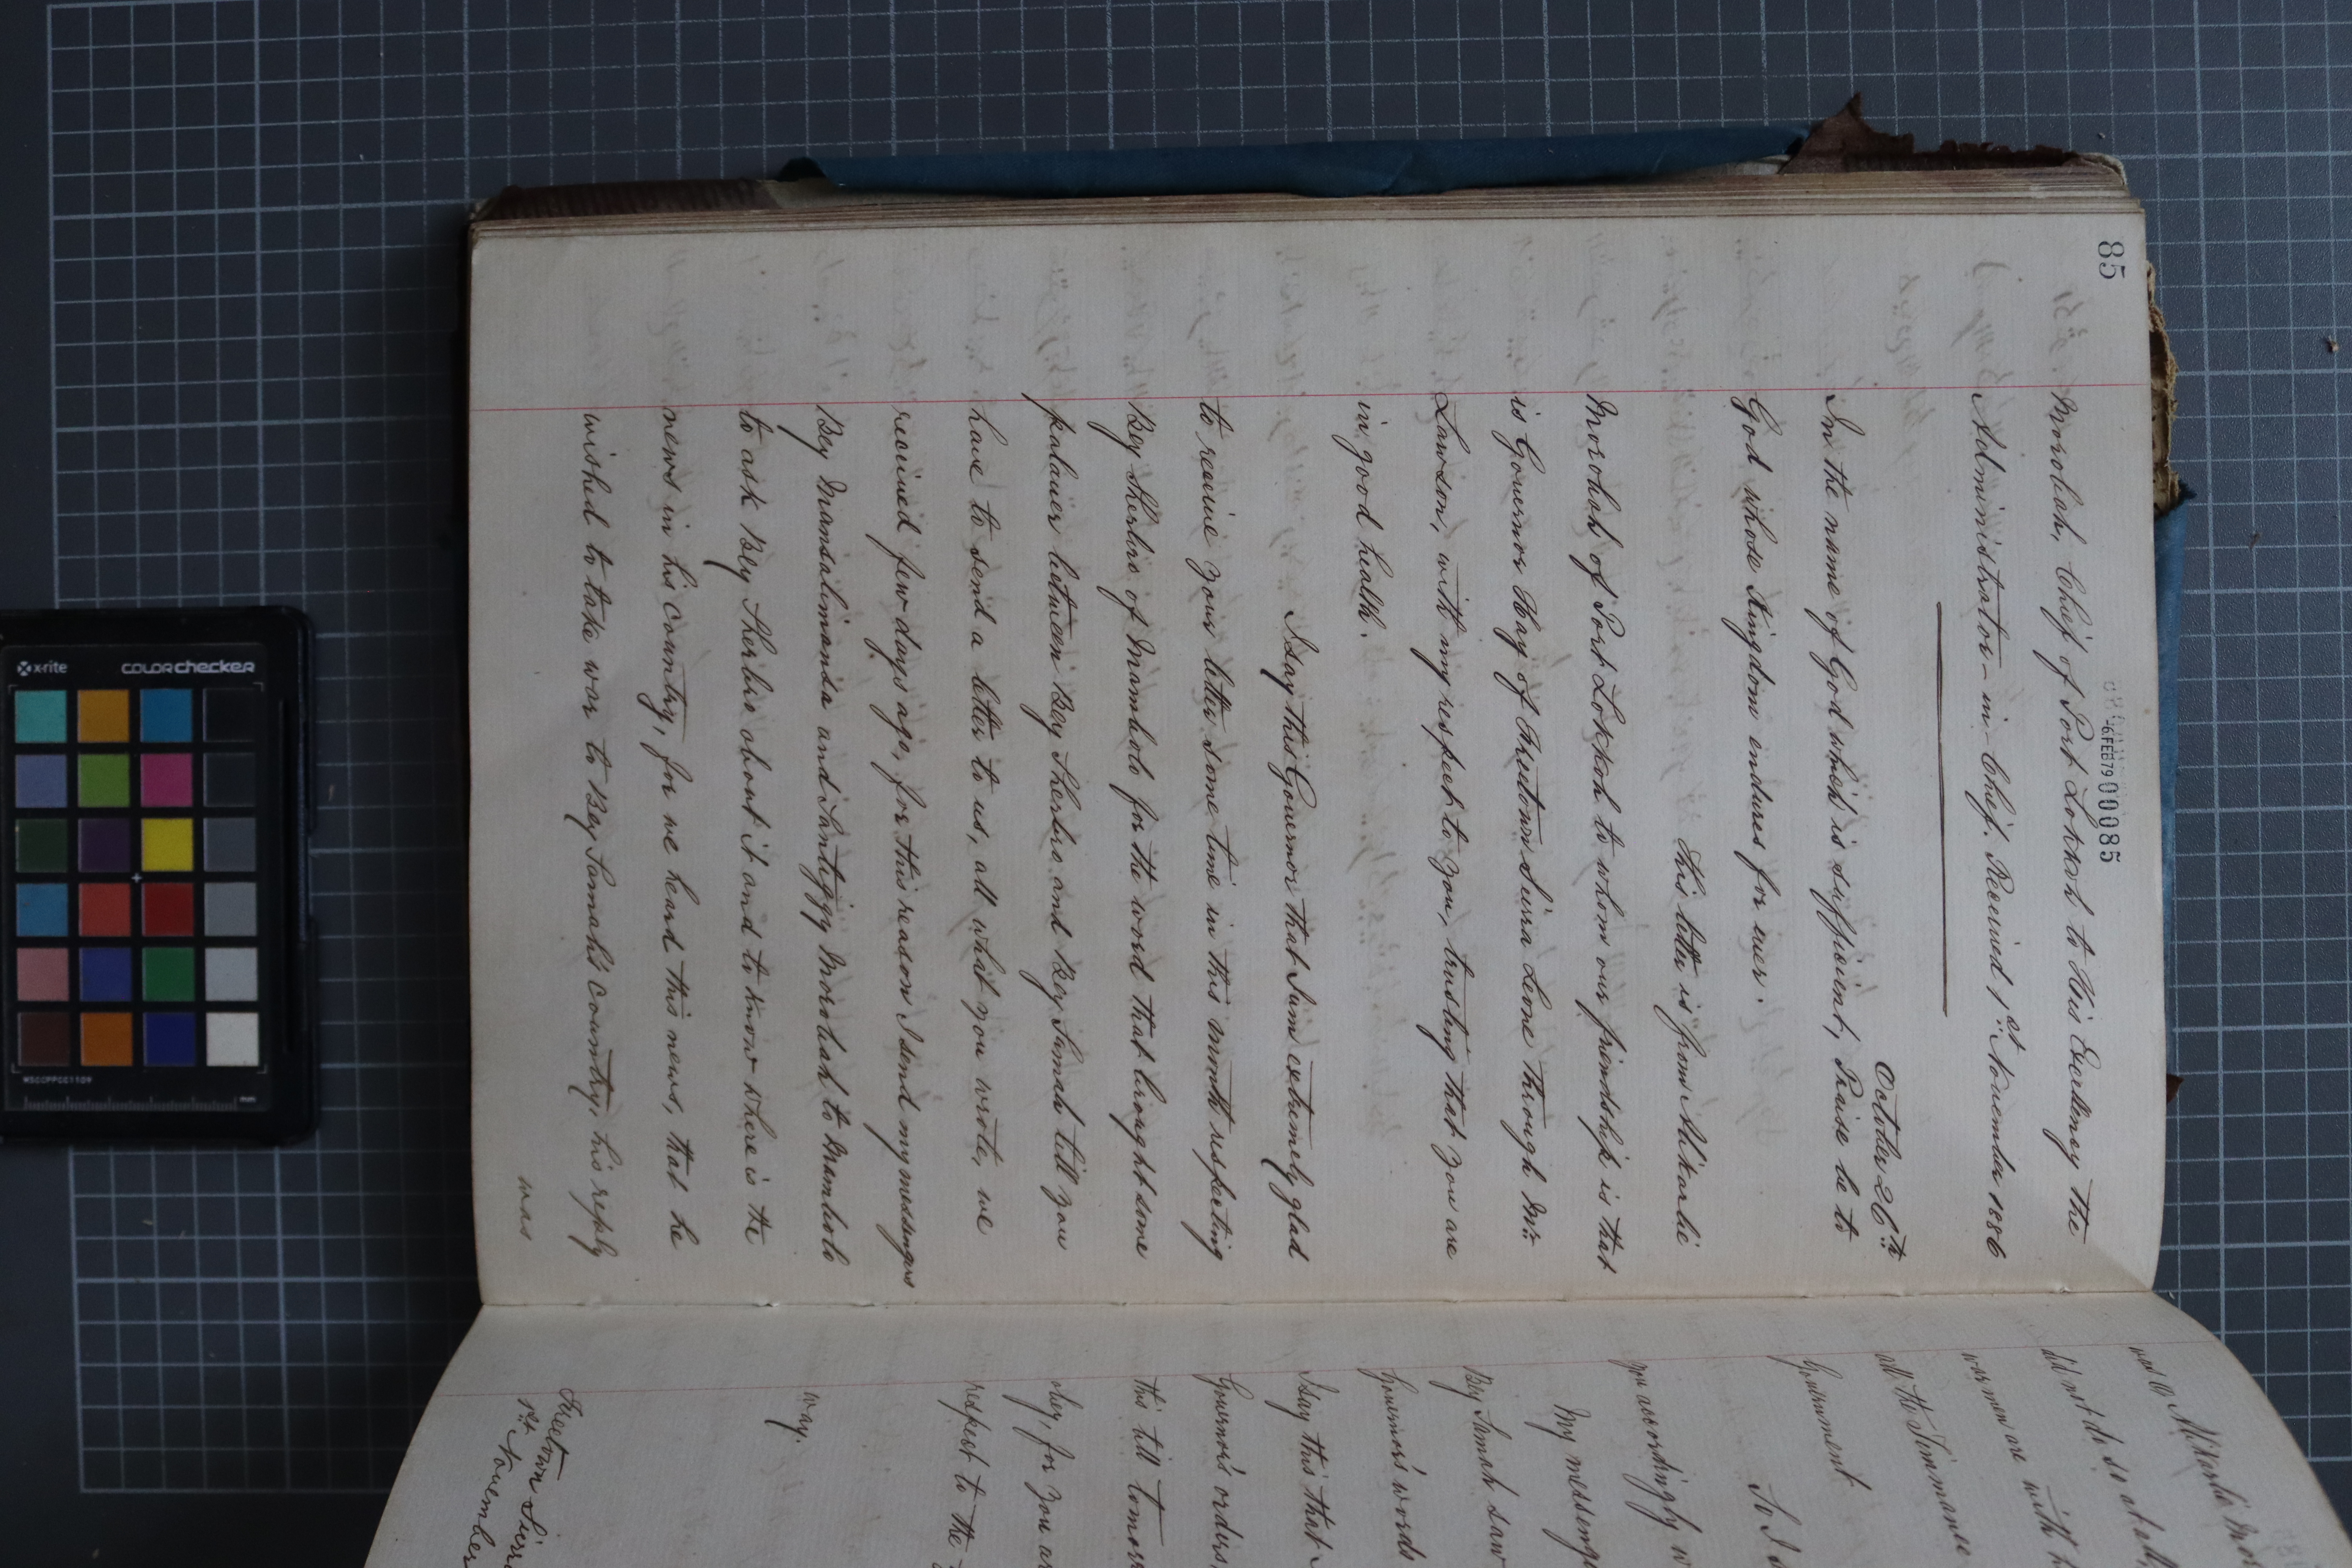 85
6 FEB 79 000085
Morolah, Chief of Port Lokkoh to His Excellency the
Administrator-in-Chief. Received 1st November 1886
October 26th
In the name of God which is sufficient, Praise be to
God whose Kingdom endures for ever.
This letter is from Alikarlie
Morolah of Port Lokkoh to whom our friendship is that
is Governor Hay of Freetown Sierra Leone through Mr
Lawson, with my respect to you, trusting that you are
in good health.
I say this Governor that I am extremely glad
to receive your letter some time in this month respecting
Bey Sherbro of Mambolo for the word that brought some
palaver between Bey Sherbro and Bey Samah till you
have to send a letter to us, all what you wrote, we
received few days ago, for this reason I send my messengers
Bey Mansalimansa and Santiggy Morolah to Mambolo
to ask Bey Sherbro about it and to know where is the
news in his country, for we heard this news, that he
wished to take war to Bey Samah's country, his reply
was
was O Alikarlie Mo
did not do so at al
war men are with h
all the Timmanee
Government
So I s
you accordingly w
My messenge
Bey Samah saw
Governor's words
I say this that
Governor's orders,
this till tomor
obey, for you ar
respect to the
way.
Freetown Sierr
1st November
x-rite colorchecker
MSCCPPCC1109
mm